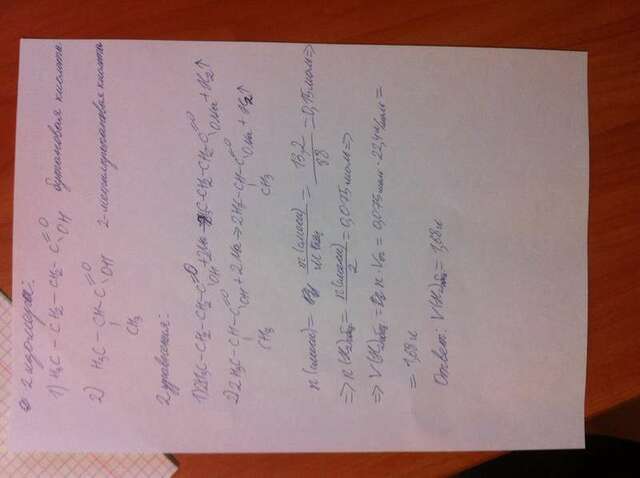 2 изомера:
1) H₃C – CH₂ – CH₂ – C =O OH бутановая кислота
2) H₃C – CH – C =O OH 2-метилпропановая кислота
CH₃
2 уравнения:
1) 2H₃C–CH₂–CH₂–C =O OH + 2Na → 2H₃C–CH₂–CH₂–C =O ONa + H₂↑
2) 2H₃C–CH–C =O OH + 2Na → 2H₃C–CH–C =O ONa + H₂↑
CH₃ CH₃
n(смеси) = = 13,2 / 88 = 0,15 моль ⇒
⇒ n(H₂) = n(смеси) / 2 = 0,075 моль ⇒
⇒ V(H₂) = n · Vm = 0,075 моль · 22,4 л/моль =
= 1,68 л
Ответ: V(H₂) = 1,68 л